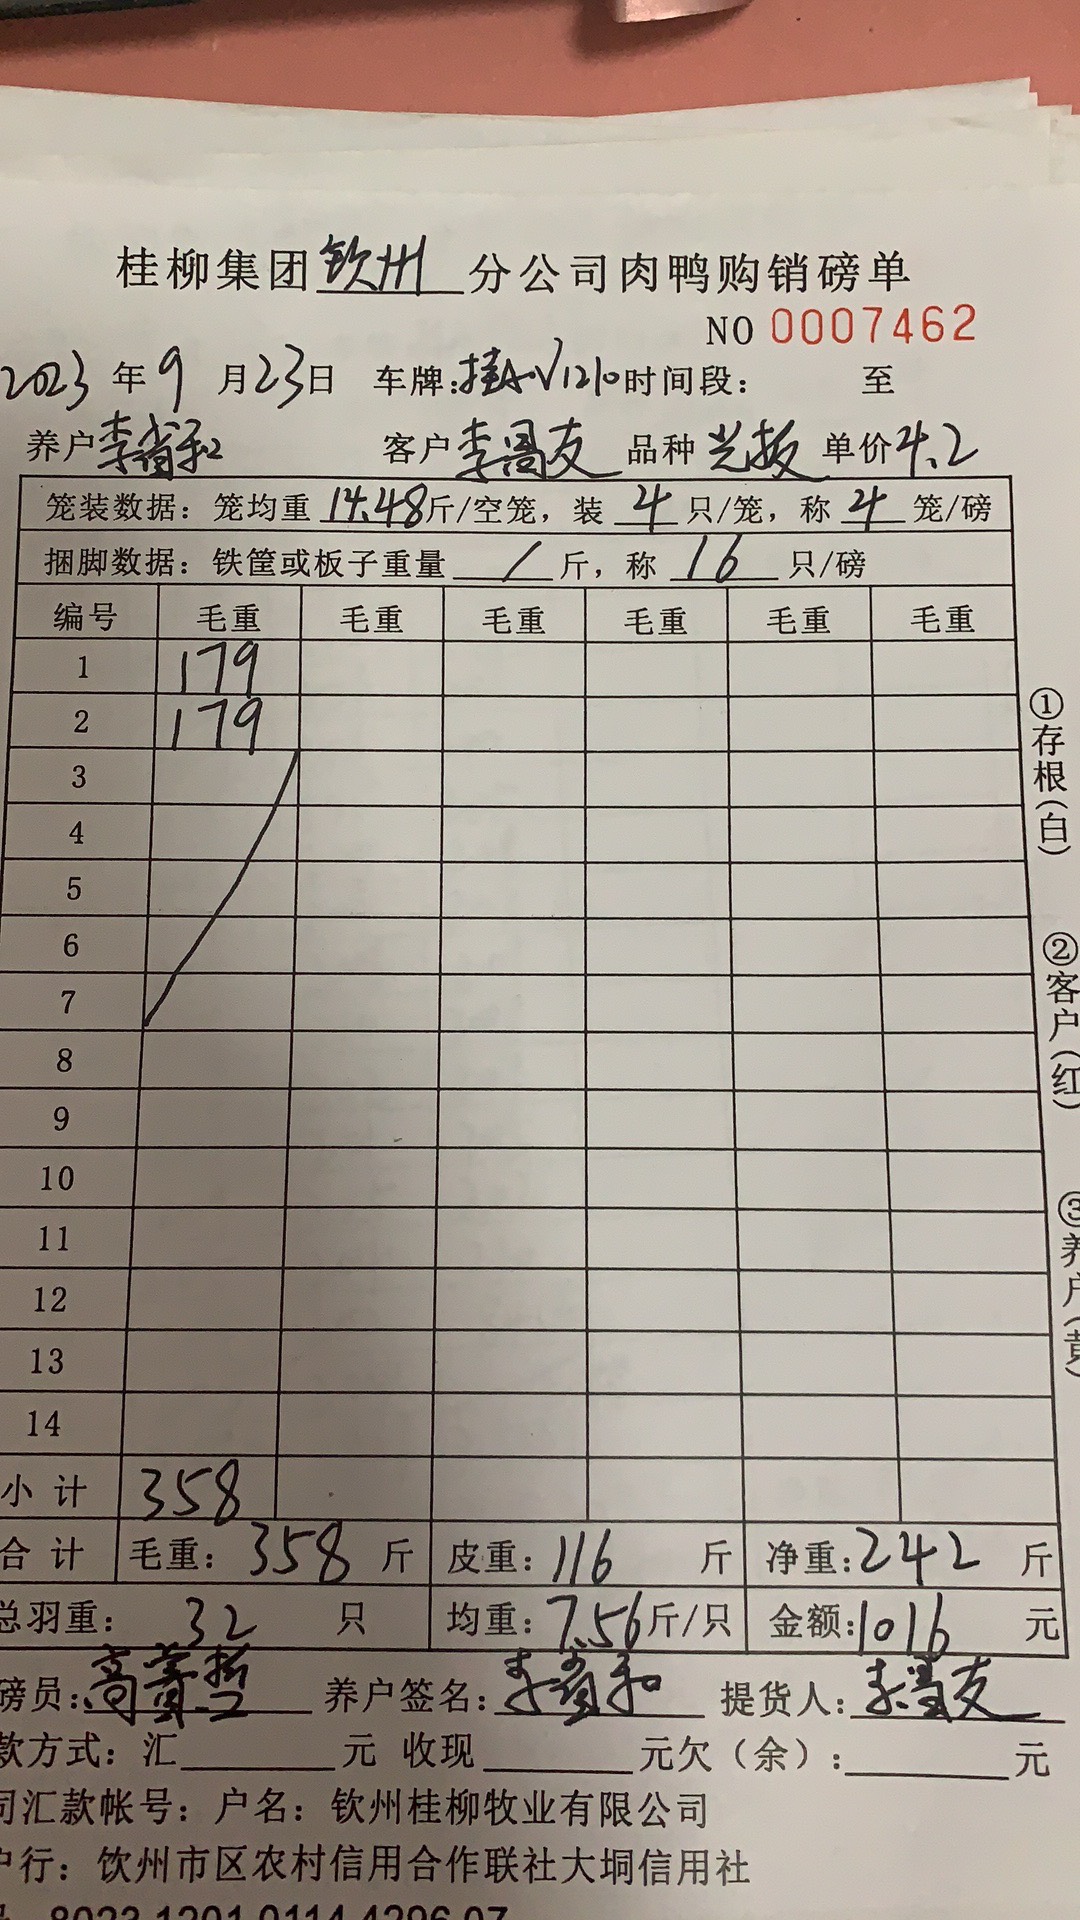 桂柳集团钦州分公司肉鸭购销磅单
NO 0007462
2023年9月23日 车牌:桂A·V1210时间段: 至
养户李肖和 客户李昌友 品种 单价4.2
笼装数据:笼均重 14.48斤/空笼,装 4 只/笼,称 4 笼/磅
捆脚数据:铁筐或板子重量 / 斤,称 16 只/磅
编号 毛重 毛重 毛重 毛重 毛重 毛重
1 179
2 179
3
4
5
6
7
8
9
10
11
12
13
14
小计 358
合计 毛重:358斤 皮重:116 斤 净重:242 斤
总羽重: 32 只 均重:7.56斤/只 金额:1016 元
磅员: 养户签名:李肖和 提货人:李昌友
款方式:汇 元 收现 元欠(余): 元
司汇款帐号:户名:钦州桂柳牧业有限公司
户行:钦州市区农村信用合作联社大垌信用社
8023 1201 0114 4296 07
①存根(白)
②客户(红)
③养户(黄)